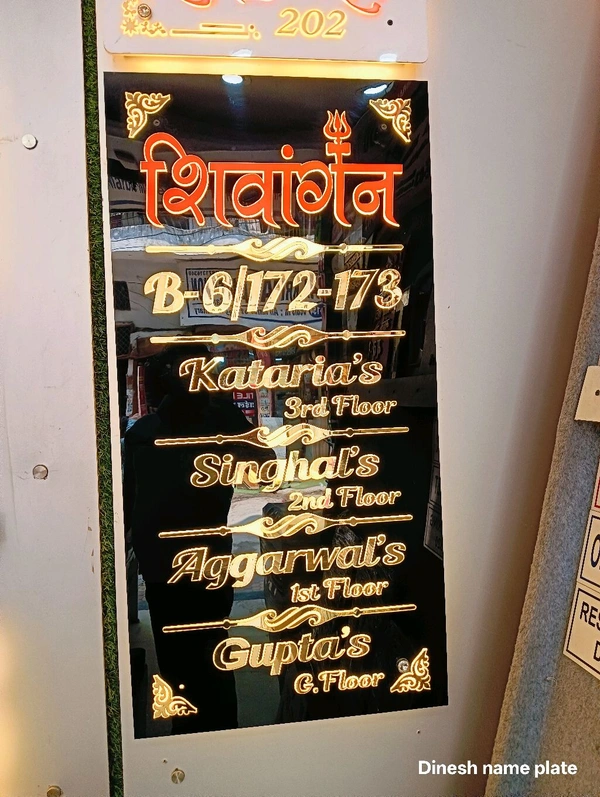 202
शिवांगन
B-6/172-173
Kataria's
3rd Floor
Singhal's
2nd Floor
Aggarwal's
1st Floor
Gupta's
G.Floor
RES
Dinesh name plate